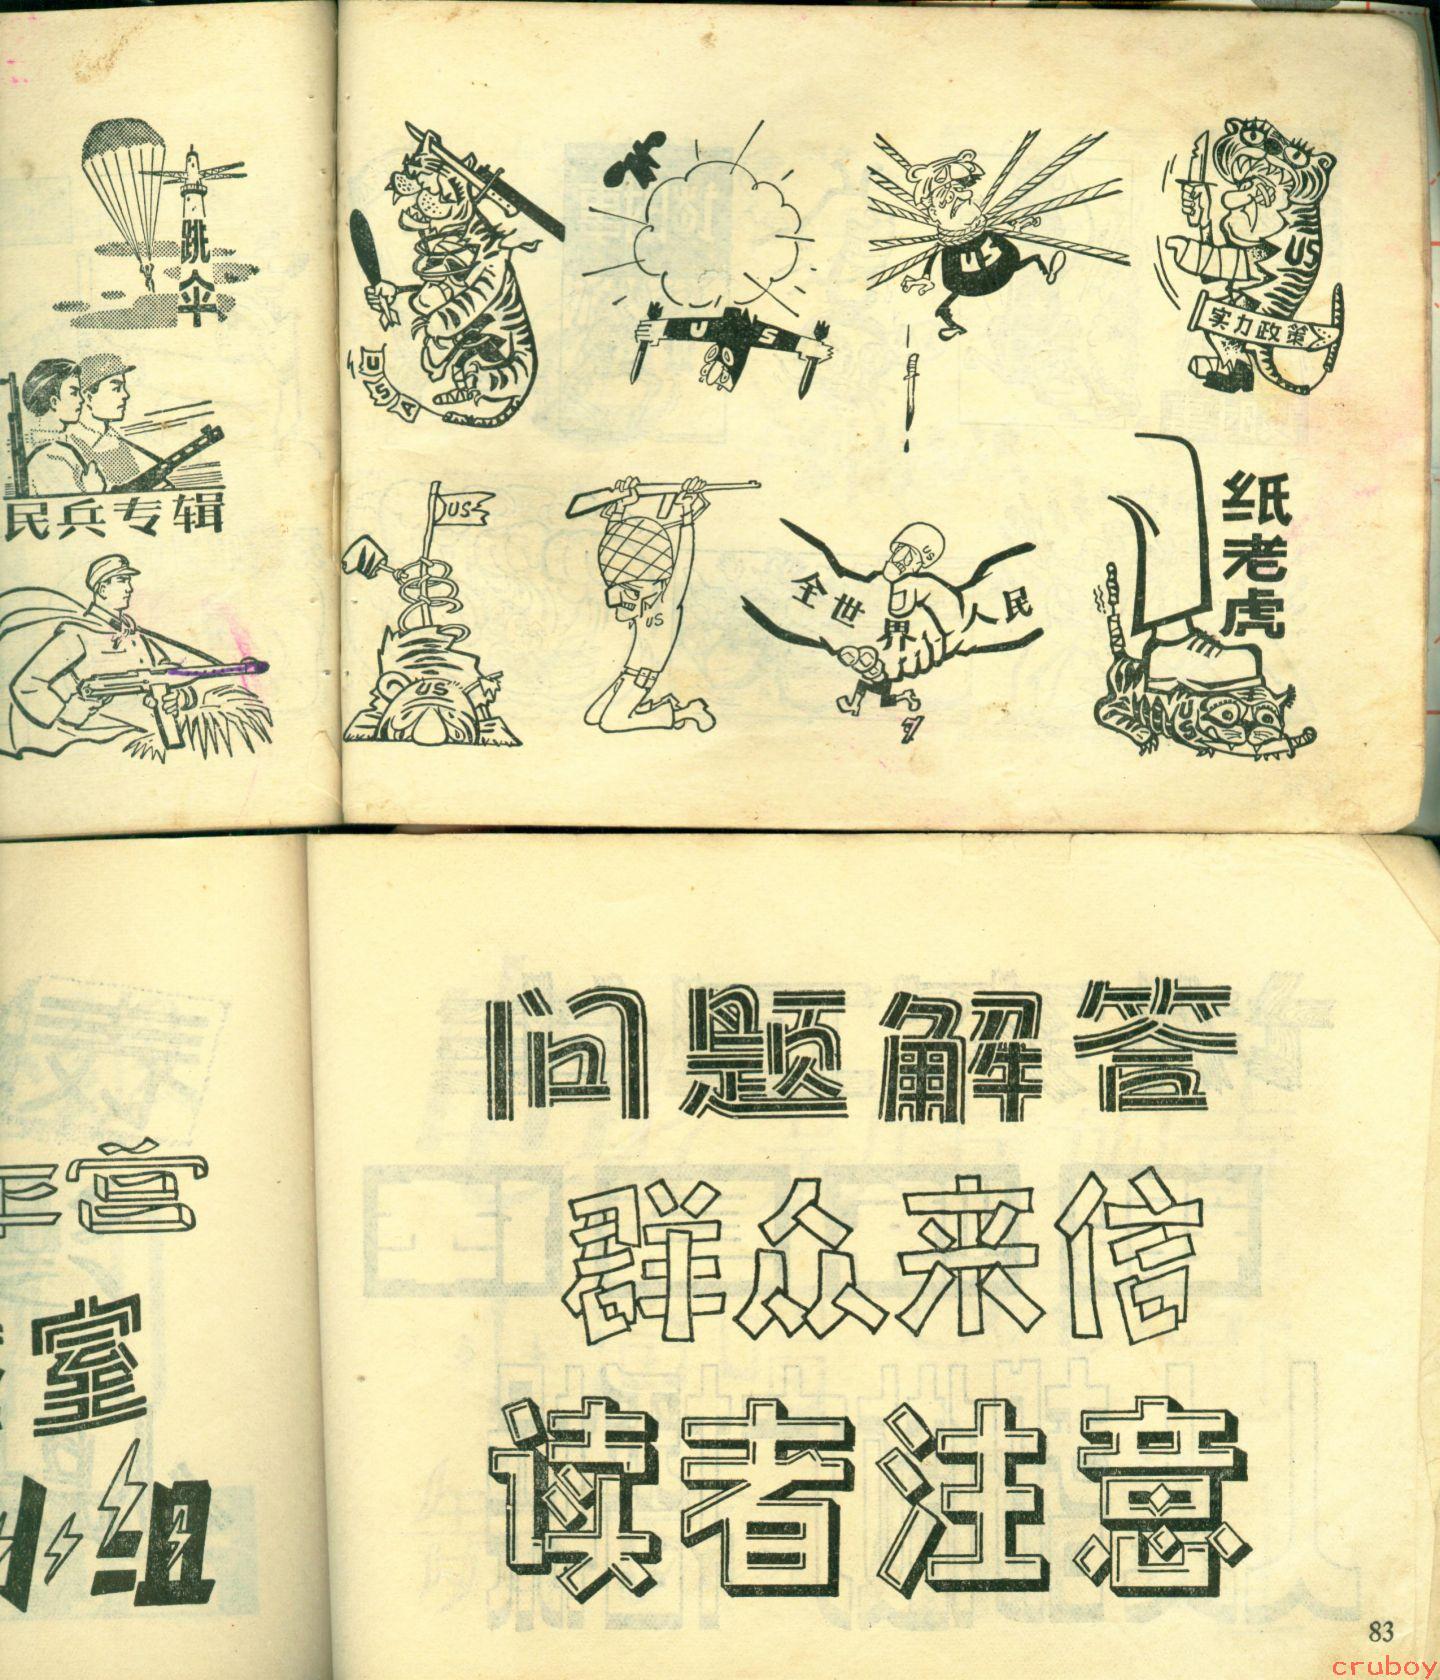 跳伞
民兵专辑
USA
US
US
US
实力政策
US
US
US
全世界人民
US
纸老虎
US
问题解答
群众来信
读者注意
室
83
cruboy